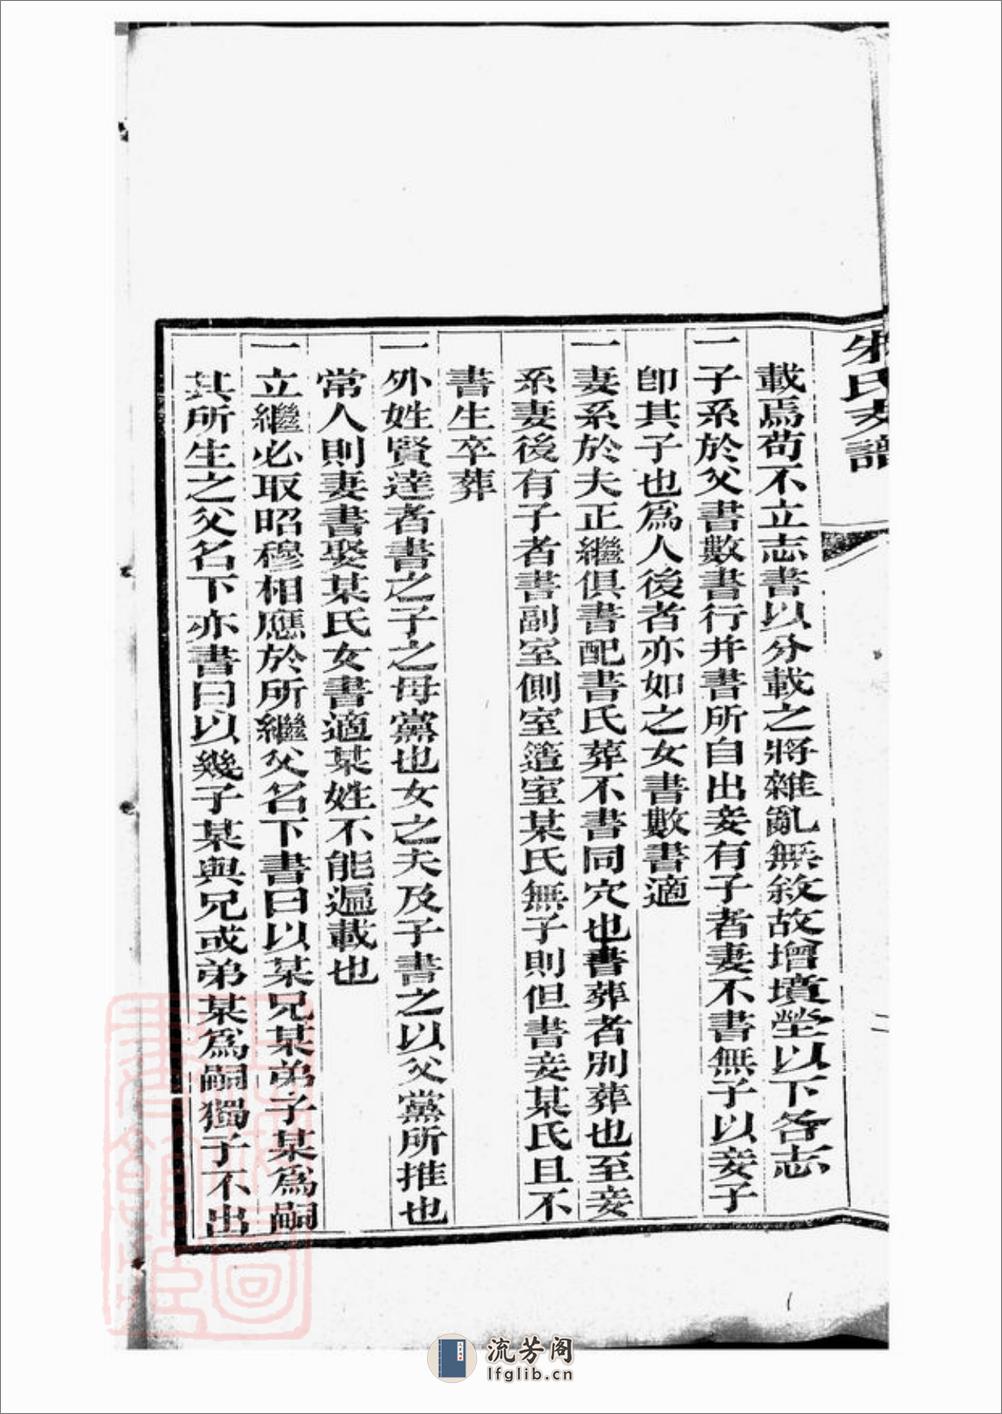 朱氏支譜
二
載焉苟不立志書以分載之將雜亂無敘故增墳塋以下各志
一子系於父書數書行并書所自出妾有子者妻不書無子以妾子
卽其子也爲人後者亦如之女書數書適
一妻系於夫正繼俱書配書氏葬不書同穴也書葬者別葬也至妾
系妻後有子者書副室側室簉室某氏無子則但書妾某氏且不
書生卒葬
一外姓賢達者書之子之母黨也女之夫及子書之以父黨所推也
常人則妻書娶某氏女書適某姓不能遍載也
一立繼必取昭穆相應於所繼父名下書曰以某兄某弟子某爲嗣
其所生之父名下亦書曰以幾子某與兄或弟某爲嗣獨子不出
流芳阁
lfglib.cn